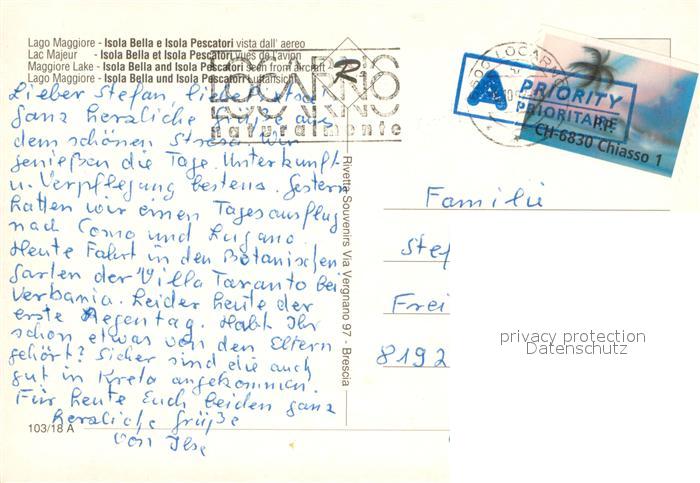 Lago Maggiore - Isola Bella e Isola Pescatori vista dall' aereo
Lac Majeur - Isola Bella et Isola Pescatori vues de l'avion
Maggiore Lake - Isola Bella and Isola Pescatori seen from aircraft
Lago Maggiore - Isola Bella und Isola Pescatori Luftansicht
LOCARNO
naturalmente
R
LOCARNO
A PRIORITY
PRIORITAIRE
P.P.
CH-6830 Chiasso 1
Lieber Stefan, liebe
ganz herzliche Grüße aus
dem schönen Stresa. Wir
genießen die Tage. Unterkunft
u. Verpflegung bestens. Gestern
hatten wir einen Tagesausflug
nach Como und Lugano.
Heute Fahrt in den Botanischen
Garten der Villa Taranto bei
Verbania. Leider heute der
erste Regentag. Habt Ihr
schon etwas von den Eltern
gehört? Sicher sind die auch
gut in Kreta angekommen.
Für heute Euch beiden ganz
herzliche Grüße
von Ilse
103/18 A
Rivetta Souvenirs Via Vergnano 97 - Brescia
Familie
Stef
Frei
8192
privacy protection
Datenschutz